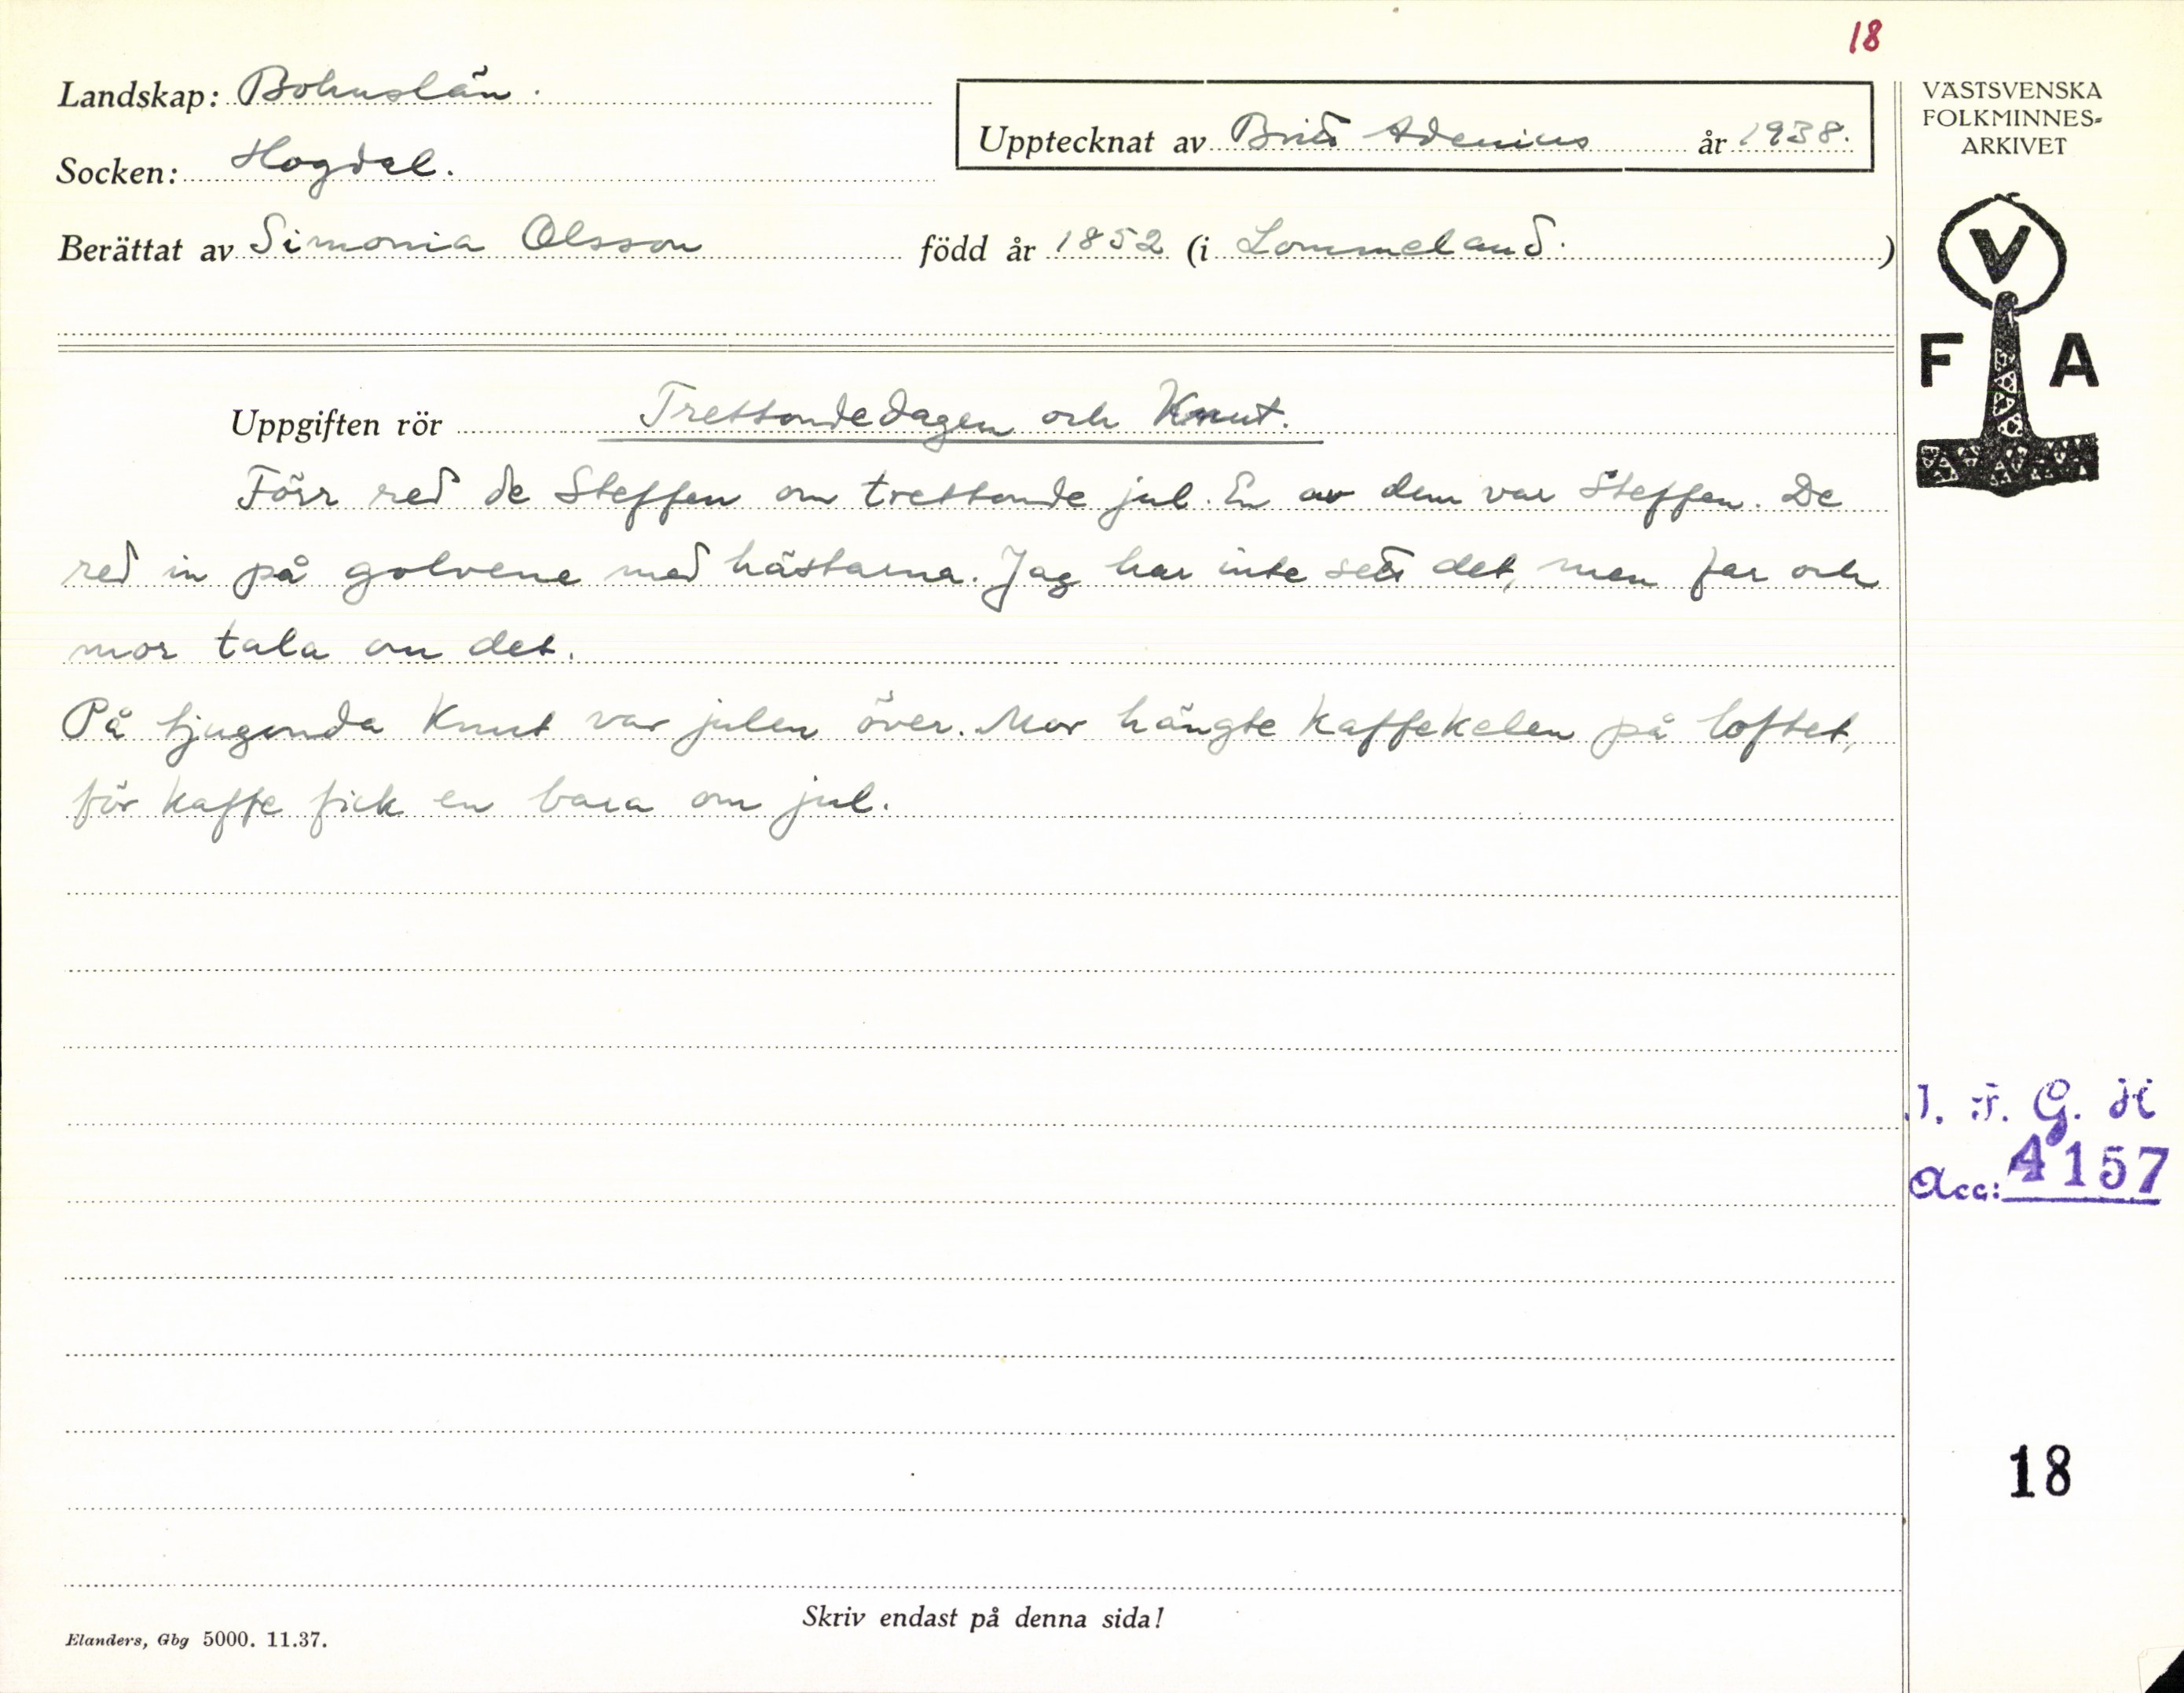 18
Landskap: Bohuslän.
Socken: Hogdal.
Upptecknat av Britt Adenius år 1938.
Berättat av Simonia Olsson född år 1852 (i Lommeland.)
VÄSTSVENSKA
FOLKMINNES-
ARKIVET
V
F A
Uppgiften rör Trettondedagen och Knut.
Förr red de Steffen om trettonde jul. En av dem var Steffen. De
red in på golvene med hästarna. Jag har inte sett det, men far och
mor tala om det.
På tjugonda Knut var julen över. Mor hängte kaffekelen på loftet,
för kaffe fick en bara om jul.
I. F. G. H
Acc: 4157
18
Skriv endast på denna sida!
Elanders, Gbg 5000. 11.37.